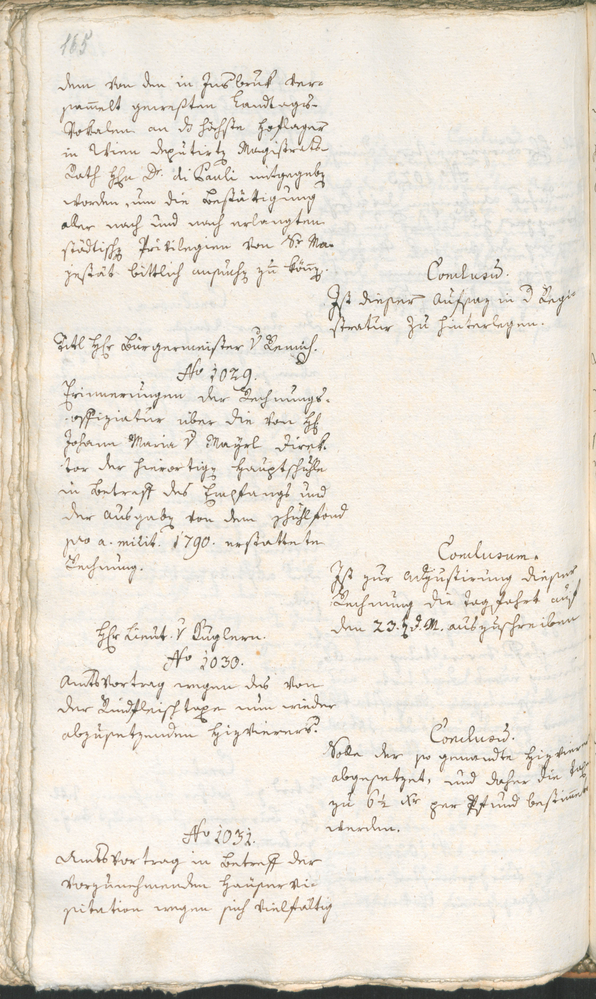 165
dem von den in Insbruk ver-
samelt gewesten Landtags-
Vokalen an ds höchste Hoflager
in Wien deputirten Magistrats
Rath Hhn Dr. di Pauli mitgegebz
worden, um die Bestättigung
aller nach und nach erlangten
städtischz Privilegien von Sr Ma-
jestät bittlich ansuchz zu könz.
Conclusũ.
Ist dieser Aufsaz in d Regi-
stratur zu hinterlegen.
Titl Hr Bürgermeister v Remich.
No 1029.
Erinnerungen der Rechnungs-
offiziatur über die von H
Johann Maria v Mayrl Direk-
tor der hierortigz Hauptschule
in Betreff des Empfangs und
der Ausgabz von dem Schulfond
pro a. milit. 1790. erstattete
Rechnung.
Conclusum.
Ist zur Adjustirung dieser
Rechnung die Tagfahrt auf
den 23. d. M. auszuschreiben
Hr Lieut. v Zuglern.
No 1030.
Amtsvortrag wegen des von
der Rindfleischtaxe nun wieder
abzusetzenden Hizvierers.
Conclusũ.
Solle der so genandte Hizvierer
abgesetzet, und daher die Taxe
zu 6½ Xr per Pfund bestimet
werden.
No 1031.
Amtsvortrag in Betreff der
vorzunehmenden Häuservi-
sitation wegen sich vielfältig